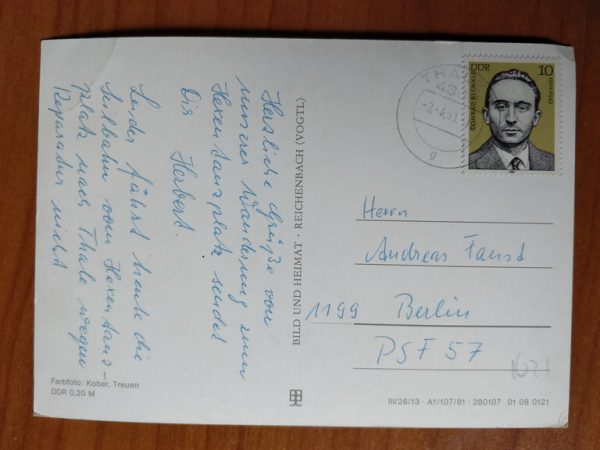 Herzliche Grüße von
unserer Wanderung zum
Hexentanzplatz sendet
Dir Herbert.
Leider fährt heute die
Seilbahn vom Hexentanz-
platz nach Thale wegen
Reparatur nicht.
Farbfoto: Kober, Treuen
DDR 0,20 M
BILD UND HEIMAT · REICHENBACH (VOGTL.)
THA
43
g
DDR 10
Herrn
Andreas Faust
1199 Berlin
PSF 57
III/26/13 · A1/107/81 · 280107 01 08 0121